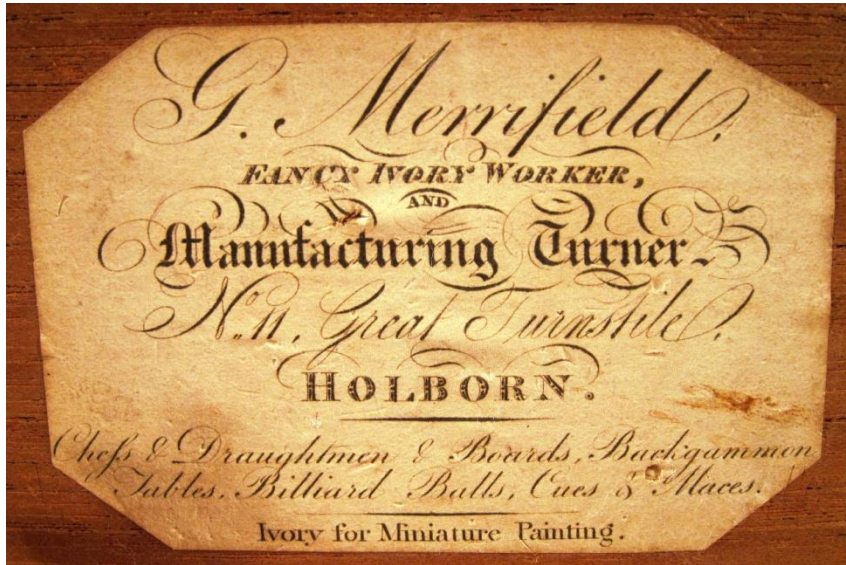 G. Merrifield.
FANCY IVORY WORKER,
AND
Manufacturing Turner.
No. 11, Great Turnstile.
HOLBORN.
Cheſs & Draughtmen & Boards, Backgammon
Tables, Billiard Balls, Cues & Maces.
Ivory for Miniature Painting.